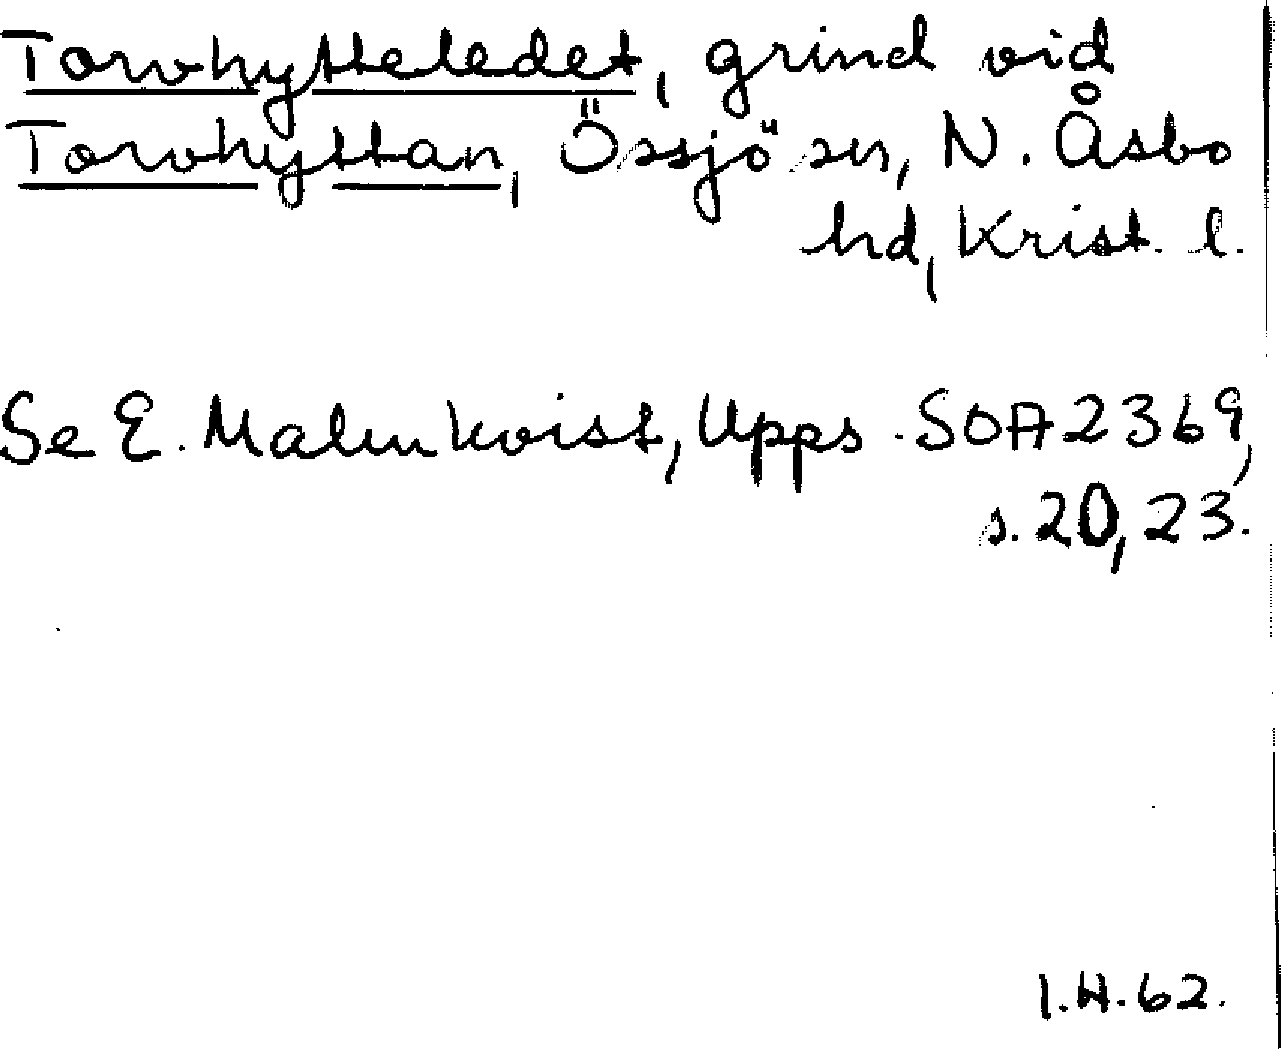 Torvhytteledet, grind vid
Torvhyttan, Össjö sn, N. Åsbo
hd, Krist. l.
Se E. Malmkvist, Upps. SOA 2369,
s. 20, 23.
I.H. 62.